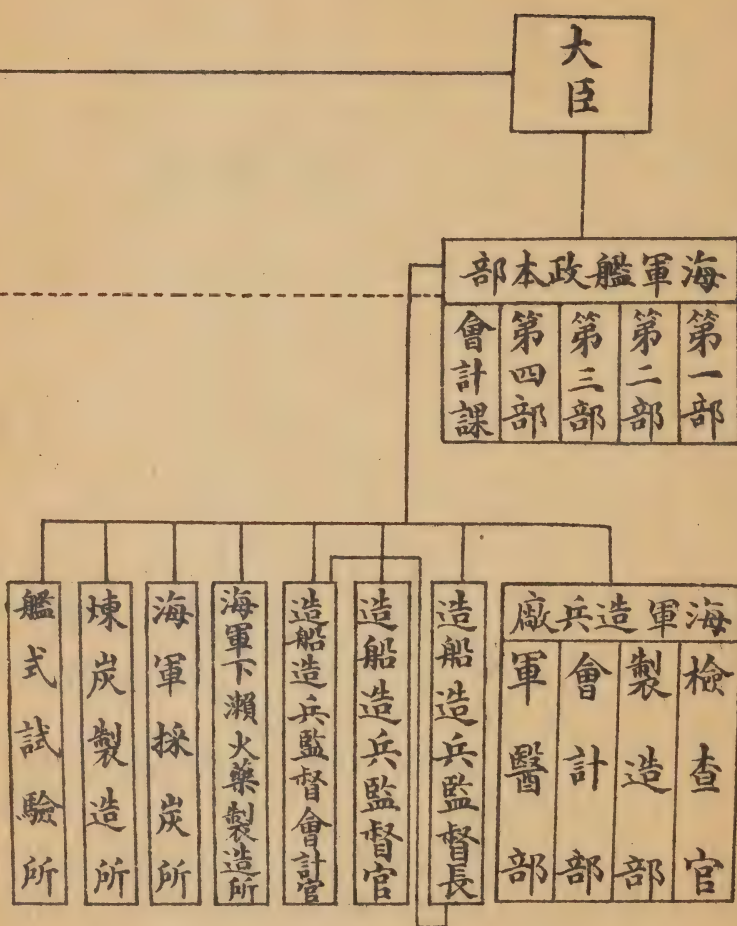 大臣
海軍艦政本部
第一部
第二部
第三部
第四部
會計課
海軍造兵廠
檢查官
製造部
會計部
軍醫部
造船造兵監督長
造船造兵監督官
造船造兵監督會計官
海軍下瀨火藥製造所
海軍採炭所
煉炭製造所
艦式試驗所